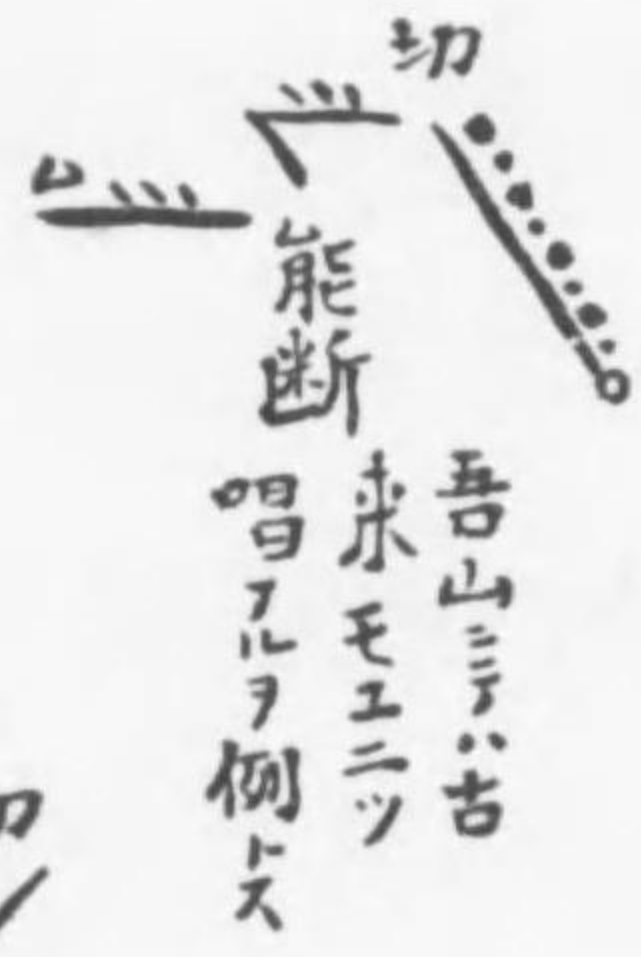 能断
吾山ニテハ古
来モエニツ
唱フルヲ例トス